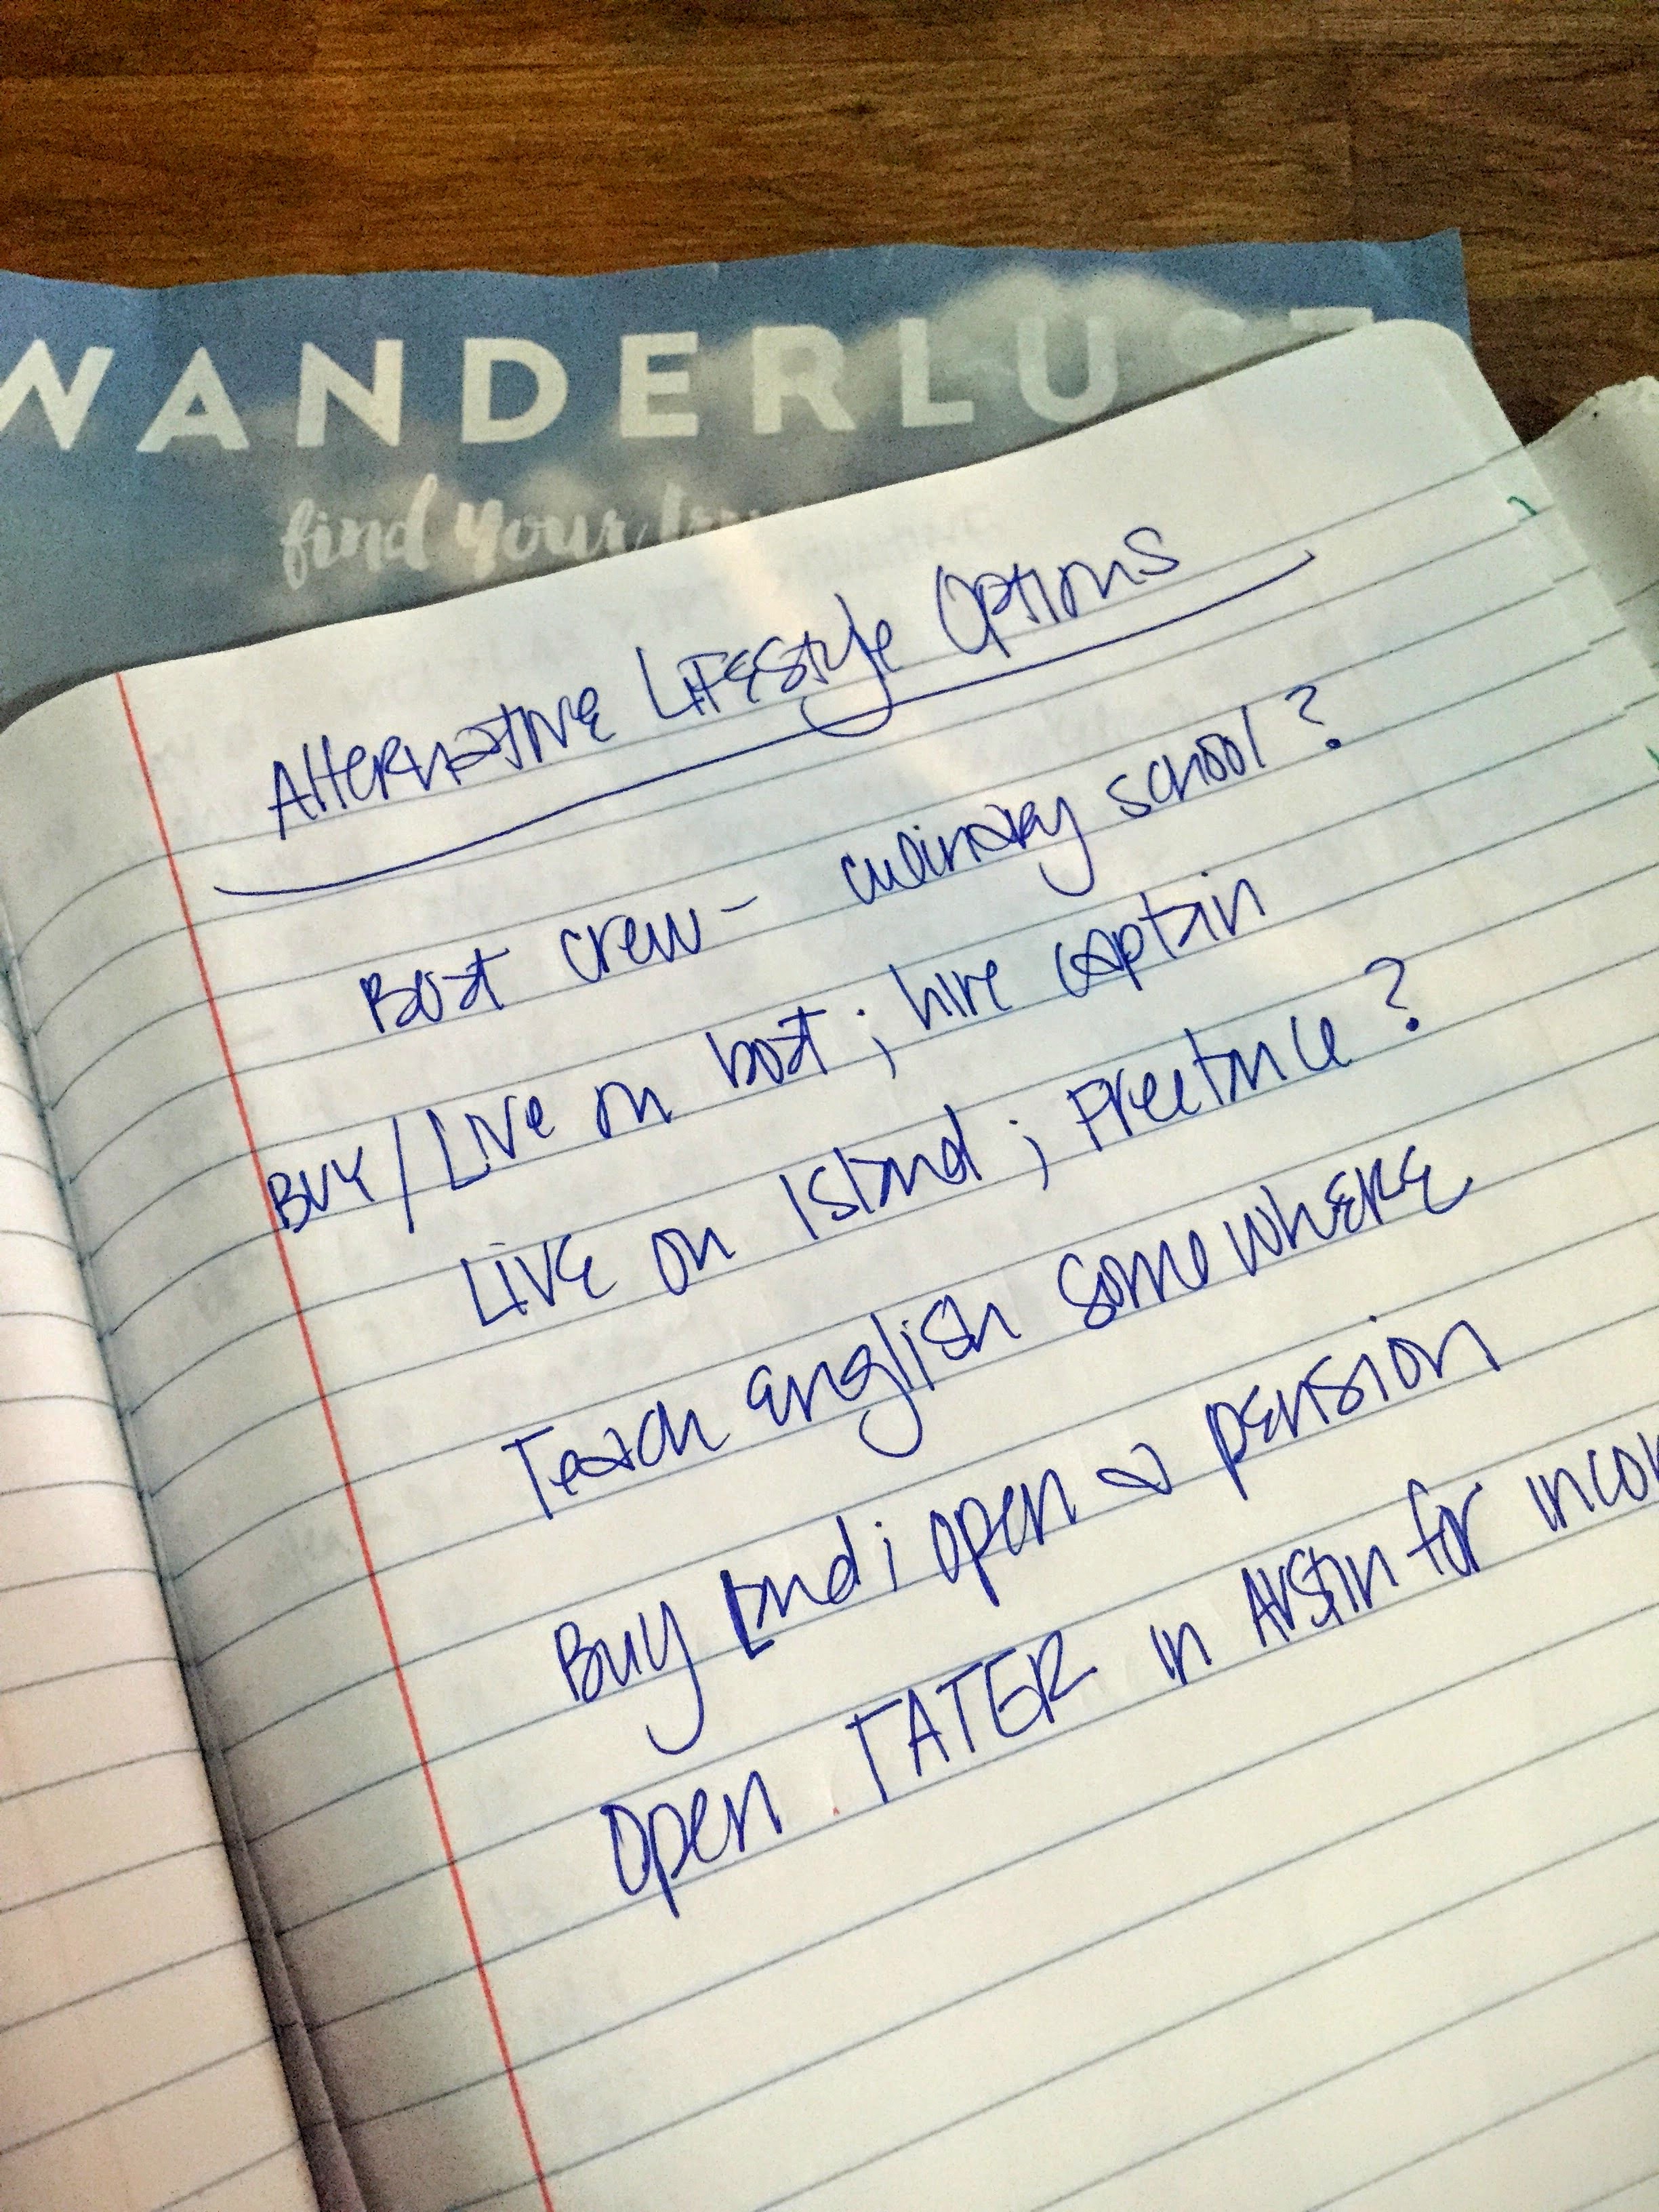 WANDERLUST
find your
Alternative Lifestyle Options
Boat crew - culinary school?
Buy/Live on boat; hire captain
Live on Island; Freelance?
Teach english somewhere
Buy Land; open a pension
Open TATER in Austin for incom